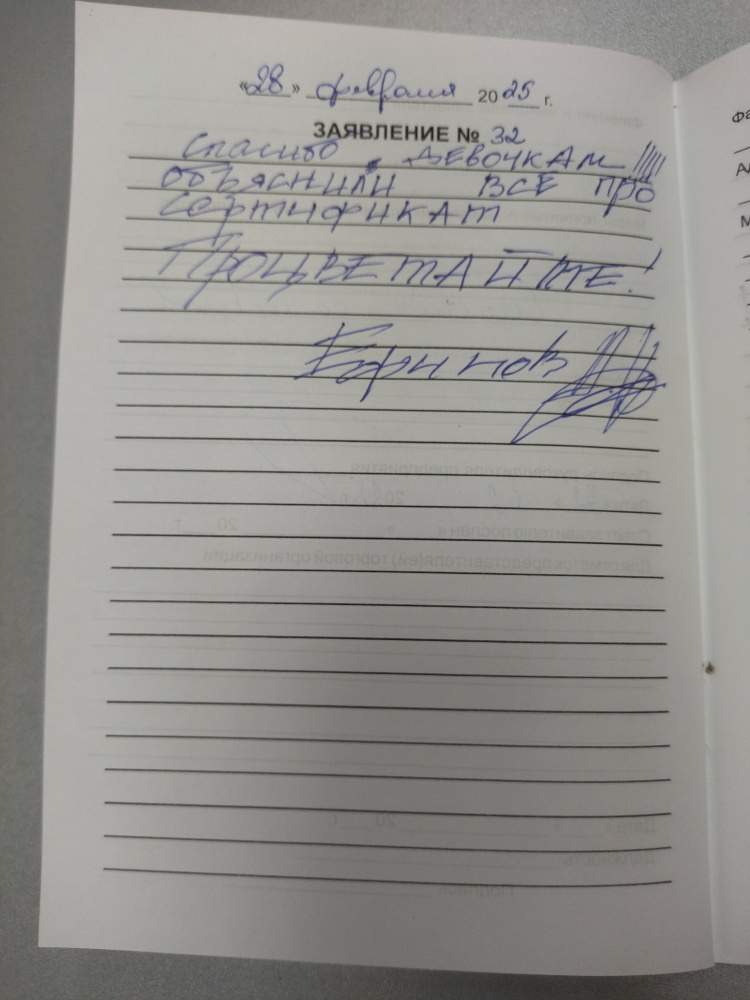 «28» февраля 2025 г.
ЗАЯВЛЕНИЕ № 32
Спасибо девочкам !!!!!
объяснили все про
сертификат
Процветайте!